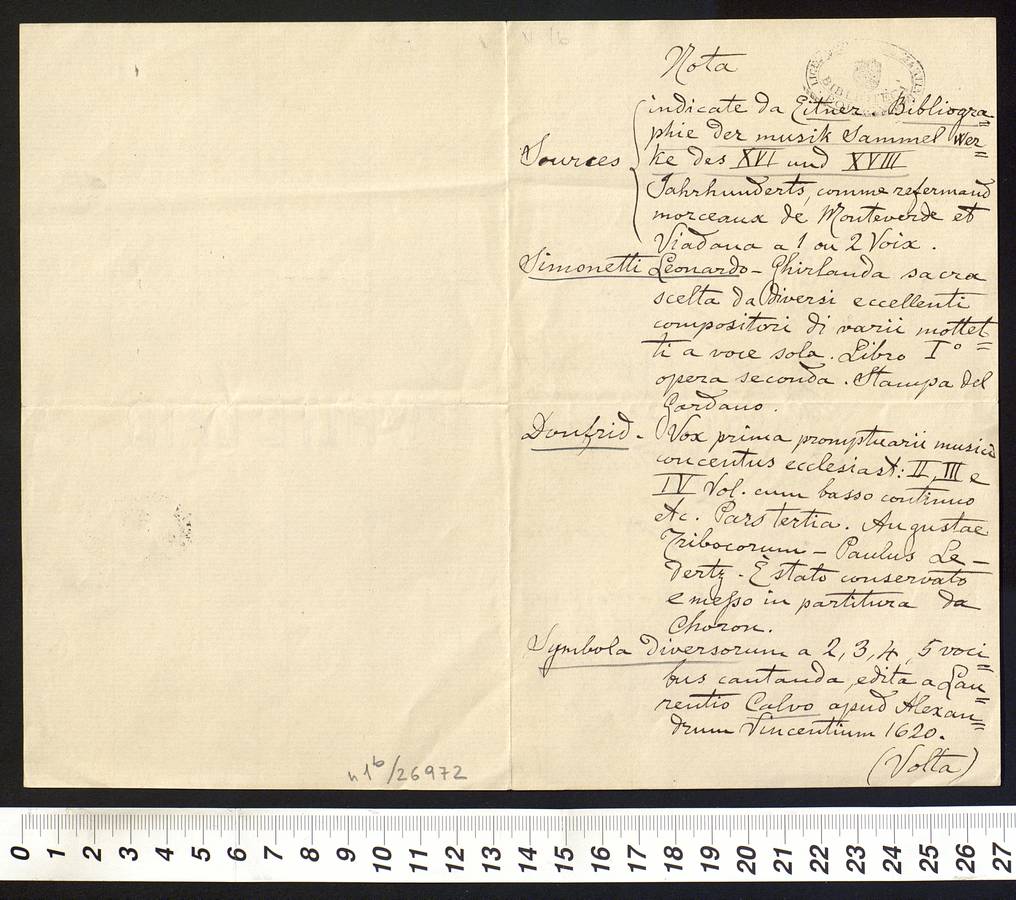 Nota
indicate da Eitner Bibliogra=
phie der musik Sammel Wer=
Sources ke des XVI und XVIII
Jahrhunderts, comme refermand
morceaux de Monteverde et
Viadana a 1 ou 2 Voix.
Simonetti Leonardo - Ghirlanda sacra
scelta da diversi eccellenti
compositori di varii mottet=
ti a voce sola. Libro I°
opera seconda. Stampa del
Gardano.
Donfrid - Vox prima promptuarii musici
concentus ecclesiast: II, III e
IV Vol. cum basso continuo
etc. Pars tertia. Augustae
Tribocorum - Paulus Le-
dertz. È stato conservato
e messo in partitura da
Choron.
Symbola diversorum a 2, 3, 4, 5 voci=
bus cantanda, edita a Lau=
rentio Calvo apud Alexan=
drum Vincentium 1620.
(Volta)
n 1b/26972
0 1 2 3 4 5 6 7 8 9 10 11 12 13 14 15 16 17 18 19 20 21 22 23 24 25 26 27